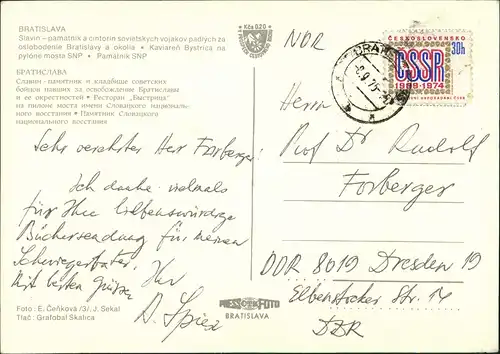 BRATISLAVA
Slavín – pamätník a cintorín sovietskych vojakov padlých za
oslobodenie Bratislavy a okolia • Kaviareň Bystrica na
pylóne mosta SNP • Pamätník SNP
БРАТИСЛАВА
Славин – памятник и кладбище советских
бойцов павших за освобождение Братиславы
и ее окрестностей • Ресторан „Быстрица"
на пилоне моста имени Словацкого национального
восстания • Памятник Словацкого
национального восстания
Kčs 0,20
NDR
ČESKOSLOVENSKO
30h
ČSSR
1969-1974
Sehr verehrter Herr Forberger!
Ich danke vielmals
für Ihre liebenswürdige
Büchersendung für meinen
Schwiegervater.
Mit besten Grüßen
Ihr
Herrn
Prof Dr Rudolf
Forberger
DDR 8019 Dresden 19
Elbenstocker Str. 14
DDR
Foto: E. Čeňková /3/, J. Sekal
Tlač: Grafobal Skalica
PRESSFOTO
BRATISLAVA